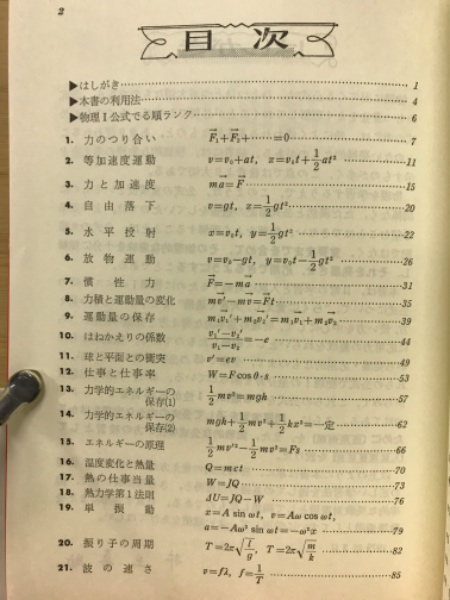 2
目次
▶はしがき…………1
▶本書の利用法…………4
▶物理Ⅰ公式でる順ランク…………6
1. 力のつり合い F₁→+F₂→+……=0…………7
2. 等加速度運動 v=v₀+at, x=v₀t+1/2at²…………11
3. 力と加速度 ma→=F→…………15
4. 自由落下 v=gt, x=1/2gt²…………20
5. 水平投射 x=v₀t, y=1/2gt²…………22
6. 放物運動 v=v₀-gt, y=v₀t-1/2gt²…………26
7. 慣性力 F→=-ma→…………31
8. 力積と運動量の変化 mv→'-mv→=F→t…………35
9. 運動量の保存 m₁v₁→'+m₂v₂→'=m₁v₁→+m₂v₂→…………39
10. はねかえりの係数 v₁'-v₂'/v₁-v₂=-e…………44
11. 球と平面との衝突 v'=ev…………49
12. 仕事と仕事率 W=Fcosθ·s…………53
13. 力学的エネルギーの保存(1) 1/2mv²=mgh…………57
14. 力学的エネルギーの保存(2) mgh+1/2mv²+1/2kx²=一定…………62
15. エネルギーの原理 1/2mv'²-1/2mv²=Fs…………66
16. 温度変化と熱量 Q=mct…………70
17. 熱の仕事当量 W=JQ…………73
18. 熱力学第1法則 ΔU=JQ-W…………76
19. 単振動 x=A sin ωt, v=Aω cos ωt,
a=-Aω² sin ωt=-ω²x…………79
20. 振り子の周期 T=2π√l/g, T=2π√m/k…………82
21. 波の速さ v=fλ, f=1/T…………85